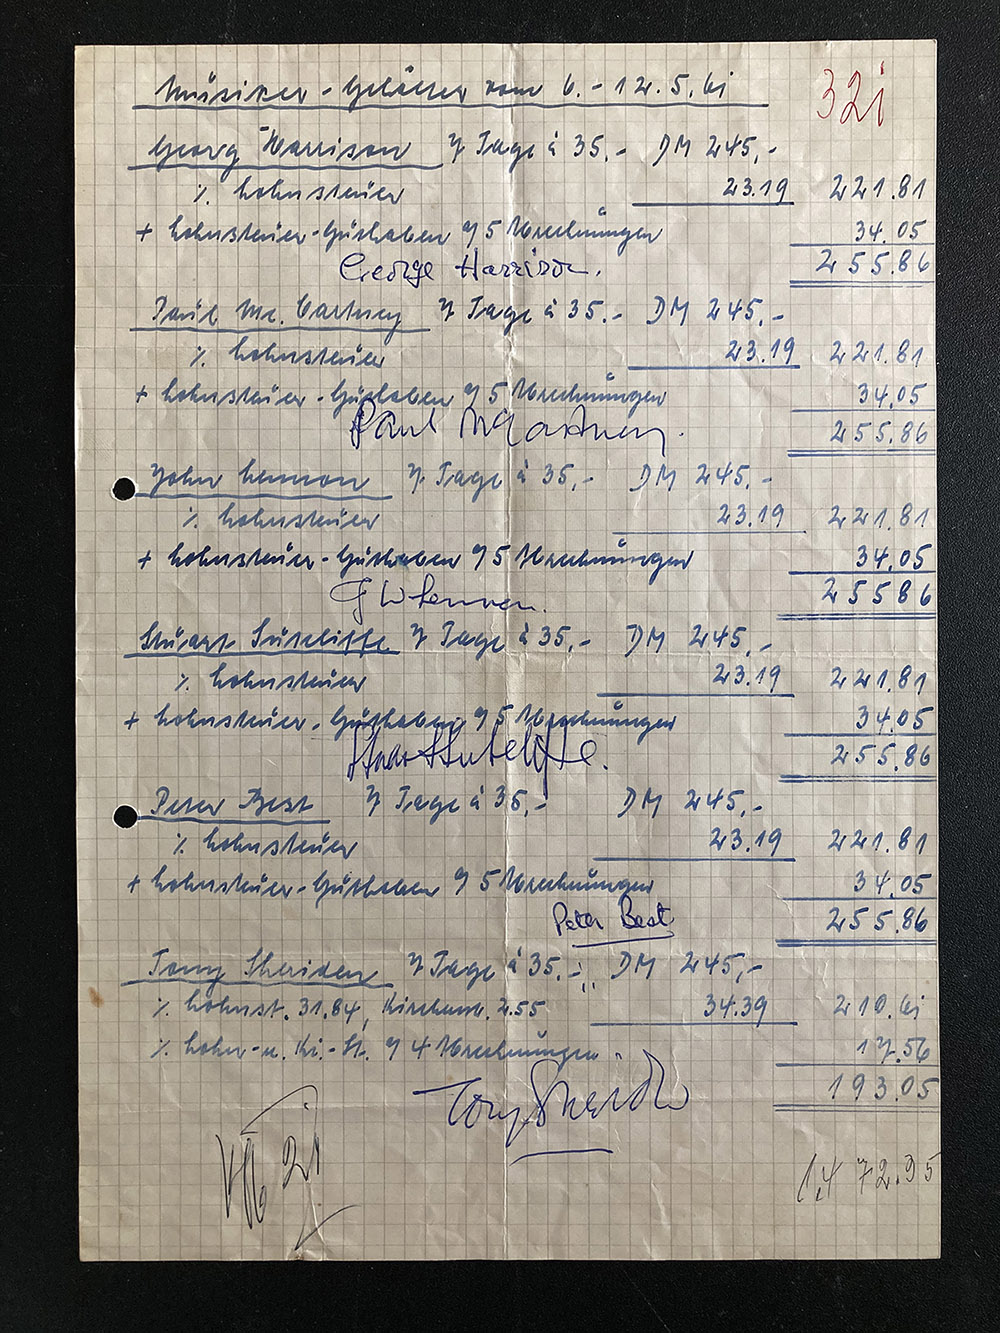 Musiker-Gelder vom 6.-12.5.61
321
Georg Harrison 7 Tage à 35.- DM 245,-
% Lohnsteuer 23.19 221.81
+ Lohnsteuer-Guthaben 95 Abrechnungen 34.05
George Harrison. 255.86
Paul Mc. Cartney 7 Tage à 35.- DM 245,-
% Lohnsteuer 23.19 221.81
+ Lohnsteuer-Guthaben 95 Abrechnungen 34.05
Paul McCartney. 255.86
John Lennon 7 Tage à 35,- DM 245,-
% Lohnsteuer 23.19 221.81
+ Lohnsteuer-Guthaben 95 Abrechnungen 34.05
J W Lennon. 25586
Stuart Sutcliffe 7 Tage à 35,- DM 245,-
% Lohnsteuer 23.19 221.81
+ Lohnsteuer-Guthaben 95 Abrechnungen 34.05
Stuart Sutcliffe. 255.86
Peter Best 7 Tage à 35,- DM 245,-
% Lohnsteuer 23.19 221.81
+ Lohnsteuer-Guthaben 95 Abrechnungen 34.05
Peter Best 255.86
Tony Sheriden 7 Tage à 35.- DM 245,-
% Lohnst. 31.84, Kirchenst. 2.55 34.39 210.61
% Lohn-u. Ki.-St. 94 Abrechnungen. 17.56
Tony Sheridan 193.05
1.472.35